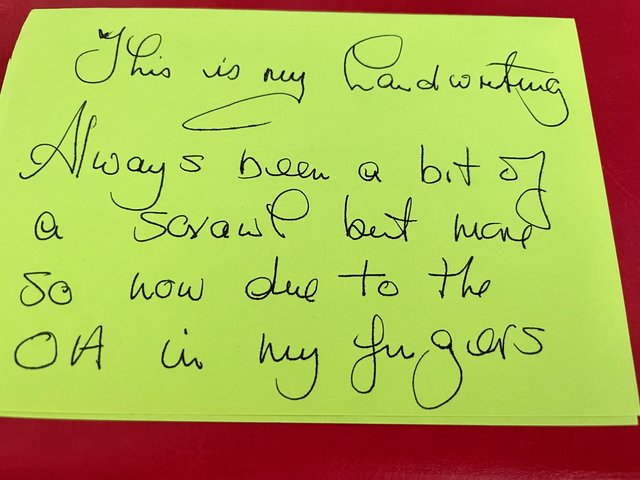 This is my handwriting
Always been a bit of
a scrawl but more
so now due to the
OA in my fingers